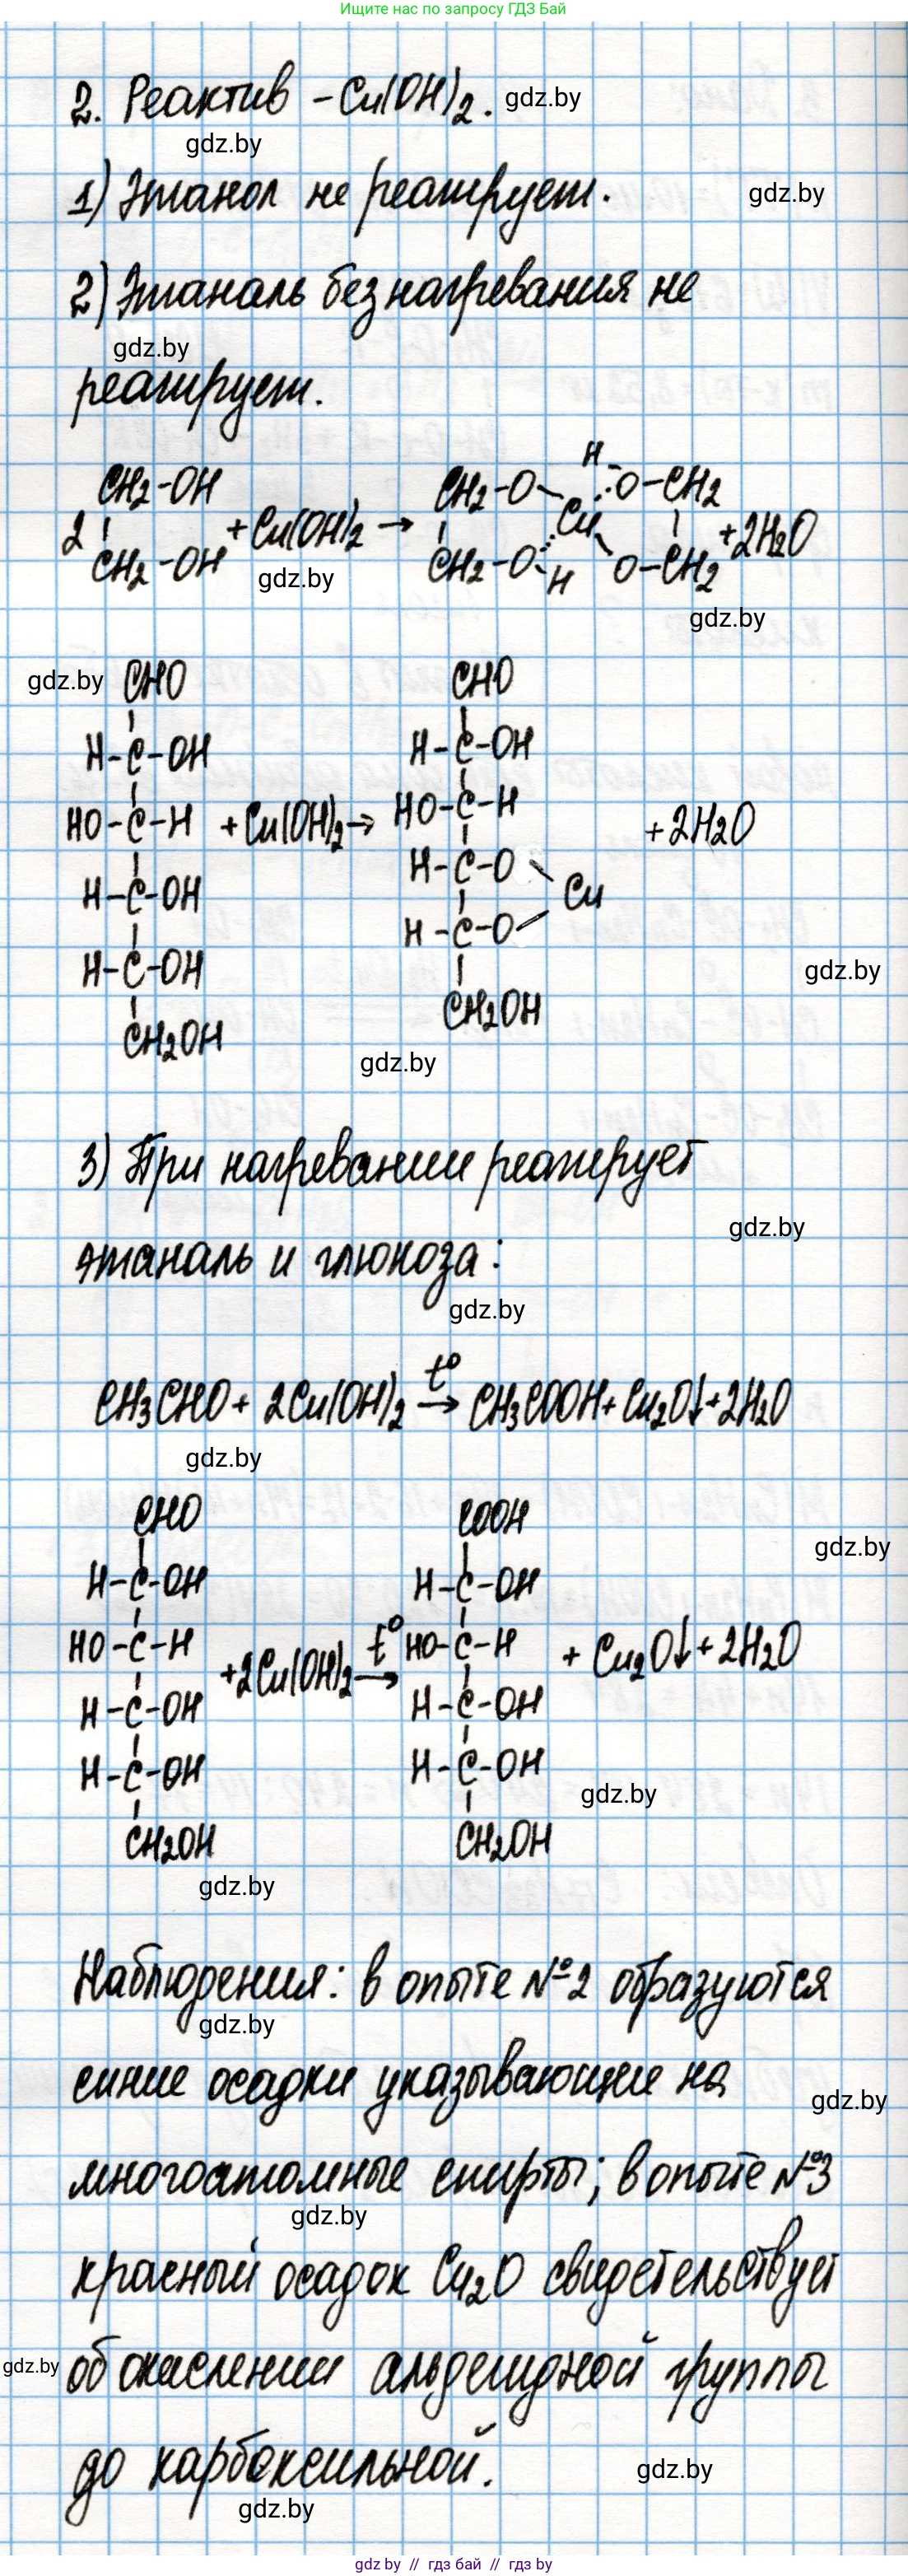 Ищите нас по запросу ГДЗ Бай
2. Реактив – Cu(OH)2. gdz.by
gdz.by
1) Этанол не реагирует. gdz.by
2) Этаналь без нагревания не
gdz.by
реагирует.
H
CH2-OH CH2-O O-CH2
2 + Cu(OH)2 → Cu +2H2O
CH2-OH CH2-O H O-CH2
gdz.by
gdz.by
gdz.by CHO CHO
H-C-OH H-C-OH
HO-C-H +Cu(OH)2→ HO-C-H +2H2O
H-C-OH H-C-O Cu
H-C-OH H-C-O
gdz.by
CH2OH CH2OH
gdz.by
3) При нагревании реагирует
gdz.by
этаналь и глюкоза:
gdz.by
CH3CHO + 2Cu(OH)2 t° → CH3COOH + Cu2O↓ + 2H2O
gdz.by
CHO COOH
gdz.by
H-C-OH H-C-OH
HO-C-H +2Cu(OH)2 t° → HO-C-H + Cu2O↓ + 2H2O
H-C-OH H-C-OH
H-C-OH H-C-OH
gdz.by
CH2OH CH2OH
gdz.by
Наблюдения: в опыте №2 образуются
gdz.by
синие осадки указывающие на
gdz.by
многоатомные спирты; в опыте №3
gdz.by
красный осадок Cu2O свидетельствует
gdz.by об окислении альдегидной группы
до карбоксильной. gdz.by
gdz.by
gdz by // гдз бай // гдз by